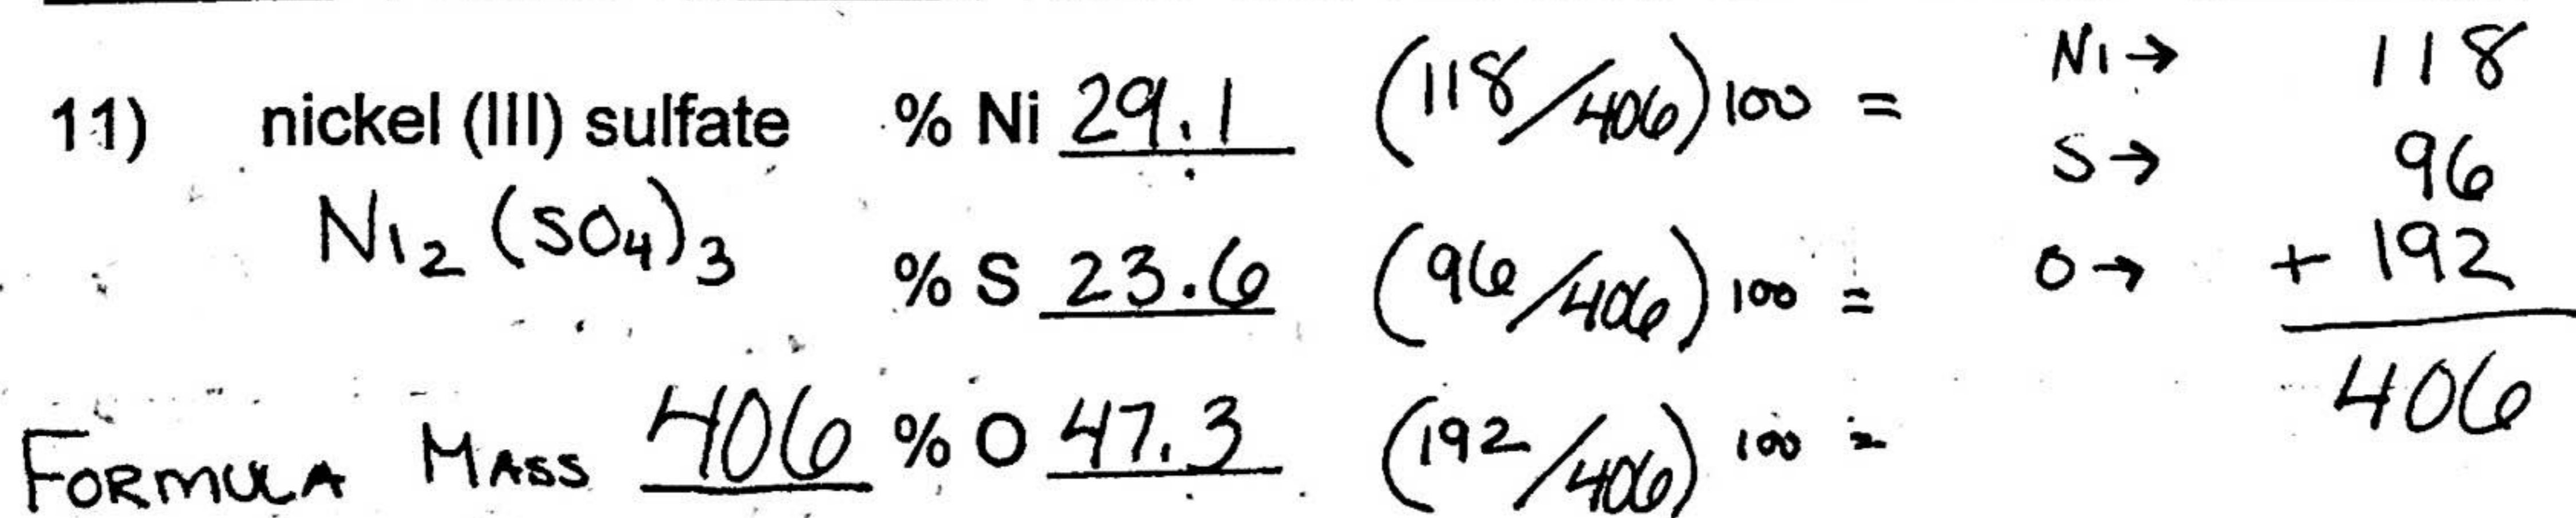 11) nickel (III) sulfate % Ni 29.1 (118/406)100 = Ni → 118
Ni2(SO4)3 % S 23.6 (96/406)100 = S → 96
O → + 192
FORMULA MASS 406 % O 47.3 (192/406)100 = 406